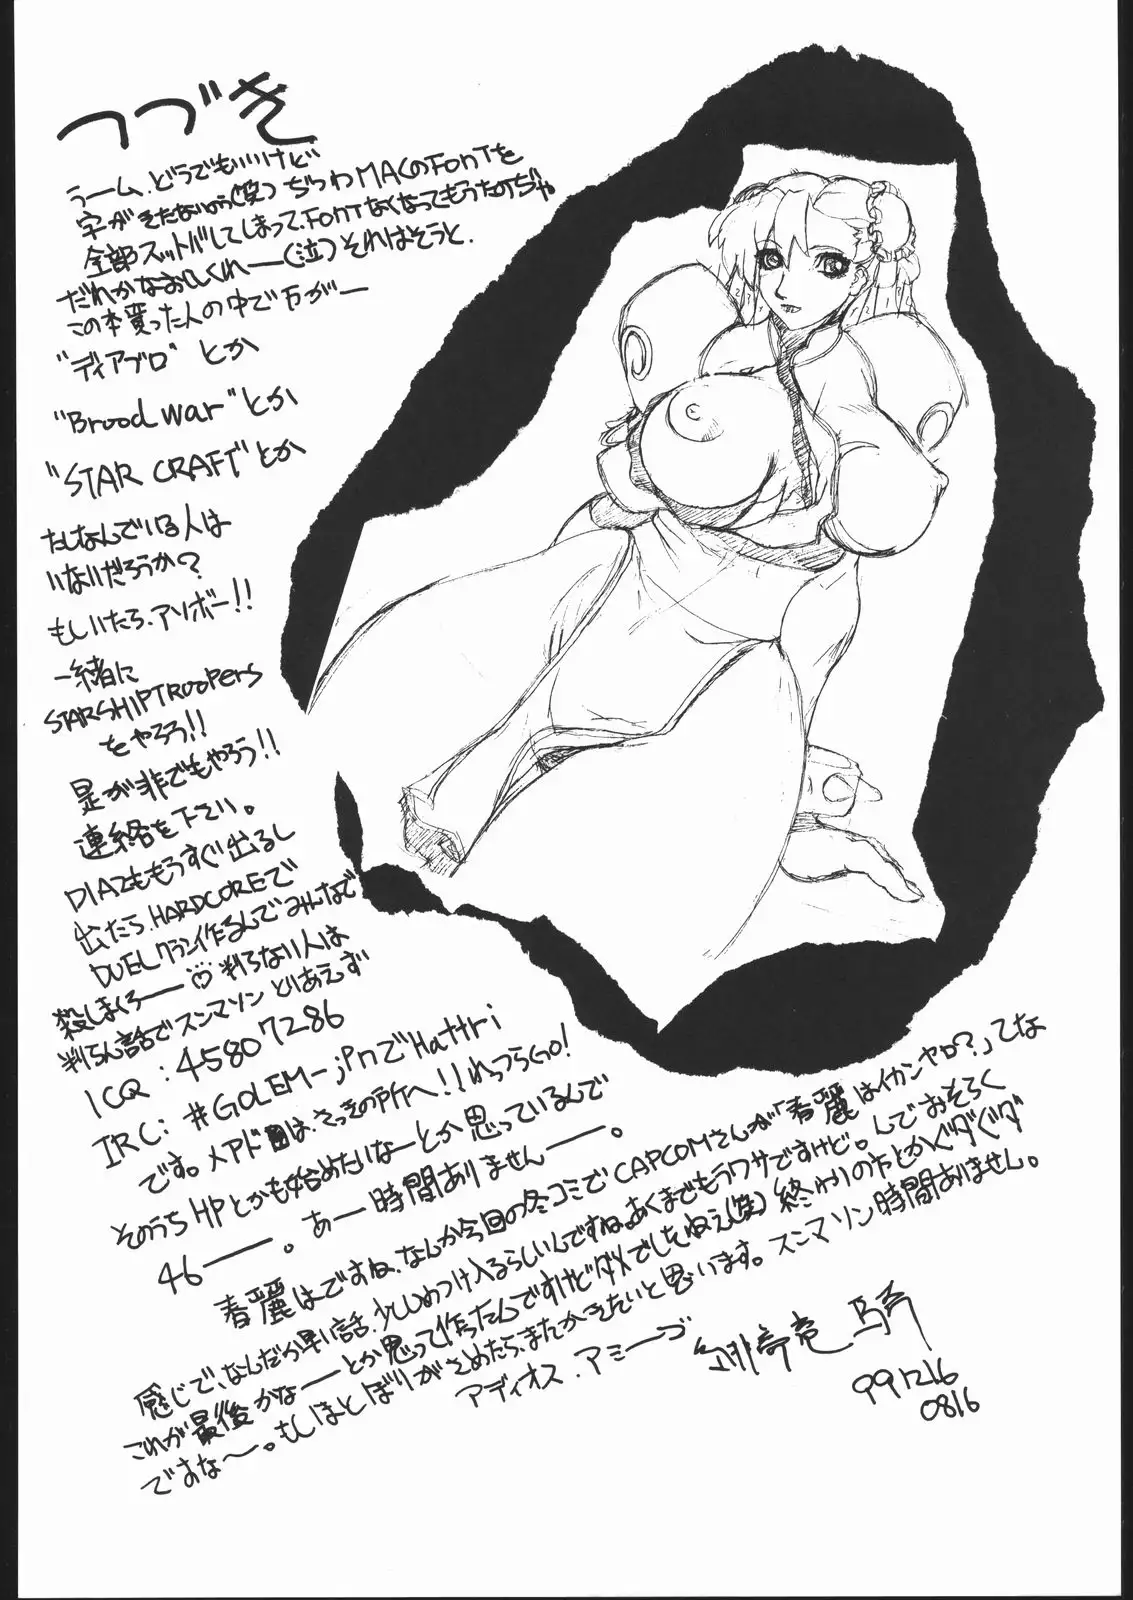 つづき
うーム、どうでもいいけど
字がきたないのう(笑)ちつわMACのFONTを
全部スットバしてしまって、FONTなくなってもうたのぢゃ
だれかなおしくれー(泣)それはそうと、
この本買った人の中で万がー
"ディアブロ"とか
"Brood war"とか
"STAR CRAFT"とか
たしなんでいる人は
いないだろうか?
もしいたら、アソボー!!
一緒に
STARSHIPTROOPERS
をやろう!!
是が非でもやろう!!
連絡を下さい。
DIA2ももうすぐ出るし
出たら、HARDCOREで
DUELクラン作るんでみんなで
殺しまくろー♡判らない人は
判らん話でスンマソンとりあえず
ICQ:45807286
IRC:#GOLEM-jpnでHattri
です。メアドは、さっきの所へ!!れっつらGO!
そのうちHPとかも始めたいなーとか思っているんで
46ー。あー時間ありませんー。
春麗はですね、なんか今回の冬コミでCAPCOMさんが「春麗はイカンヤロ?」てな
感じで、なんだか早い話、少ししめつけ入るらしいんですね。あくまでもうワサですけど。んでおそらく
これが最後かなーとか思って作ったんですけどダメでしたねえ(笑)終わりの方とかグダグダ
ですな〜。もしほとぼりがさめたら、またかきたいと思います。スンマソン時間ありません。
アディオス、アミーゴ
991216
0816